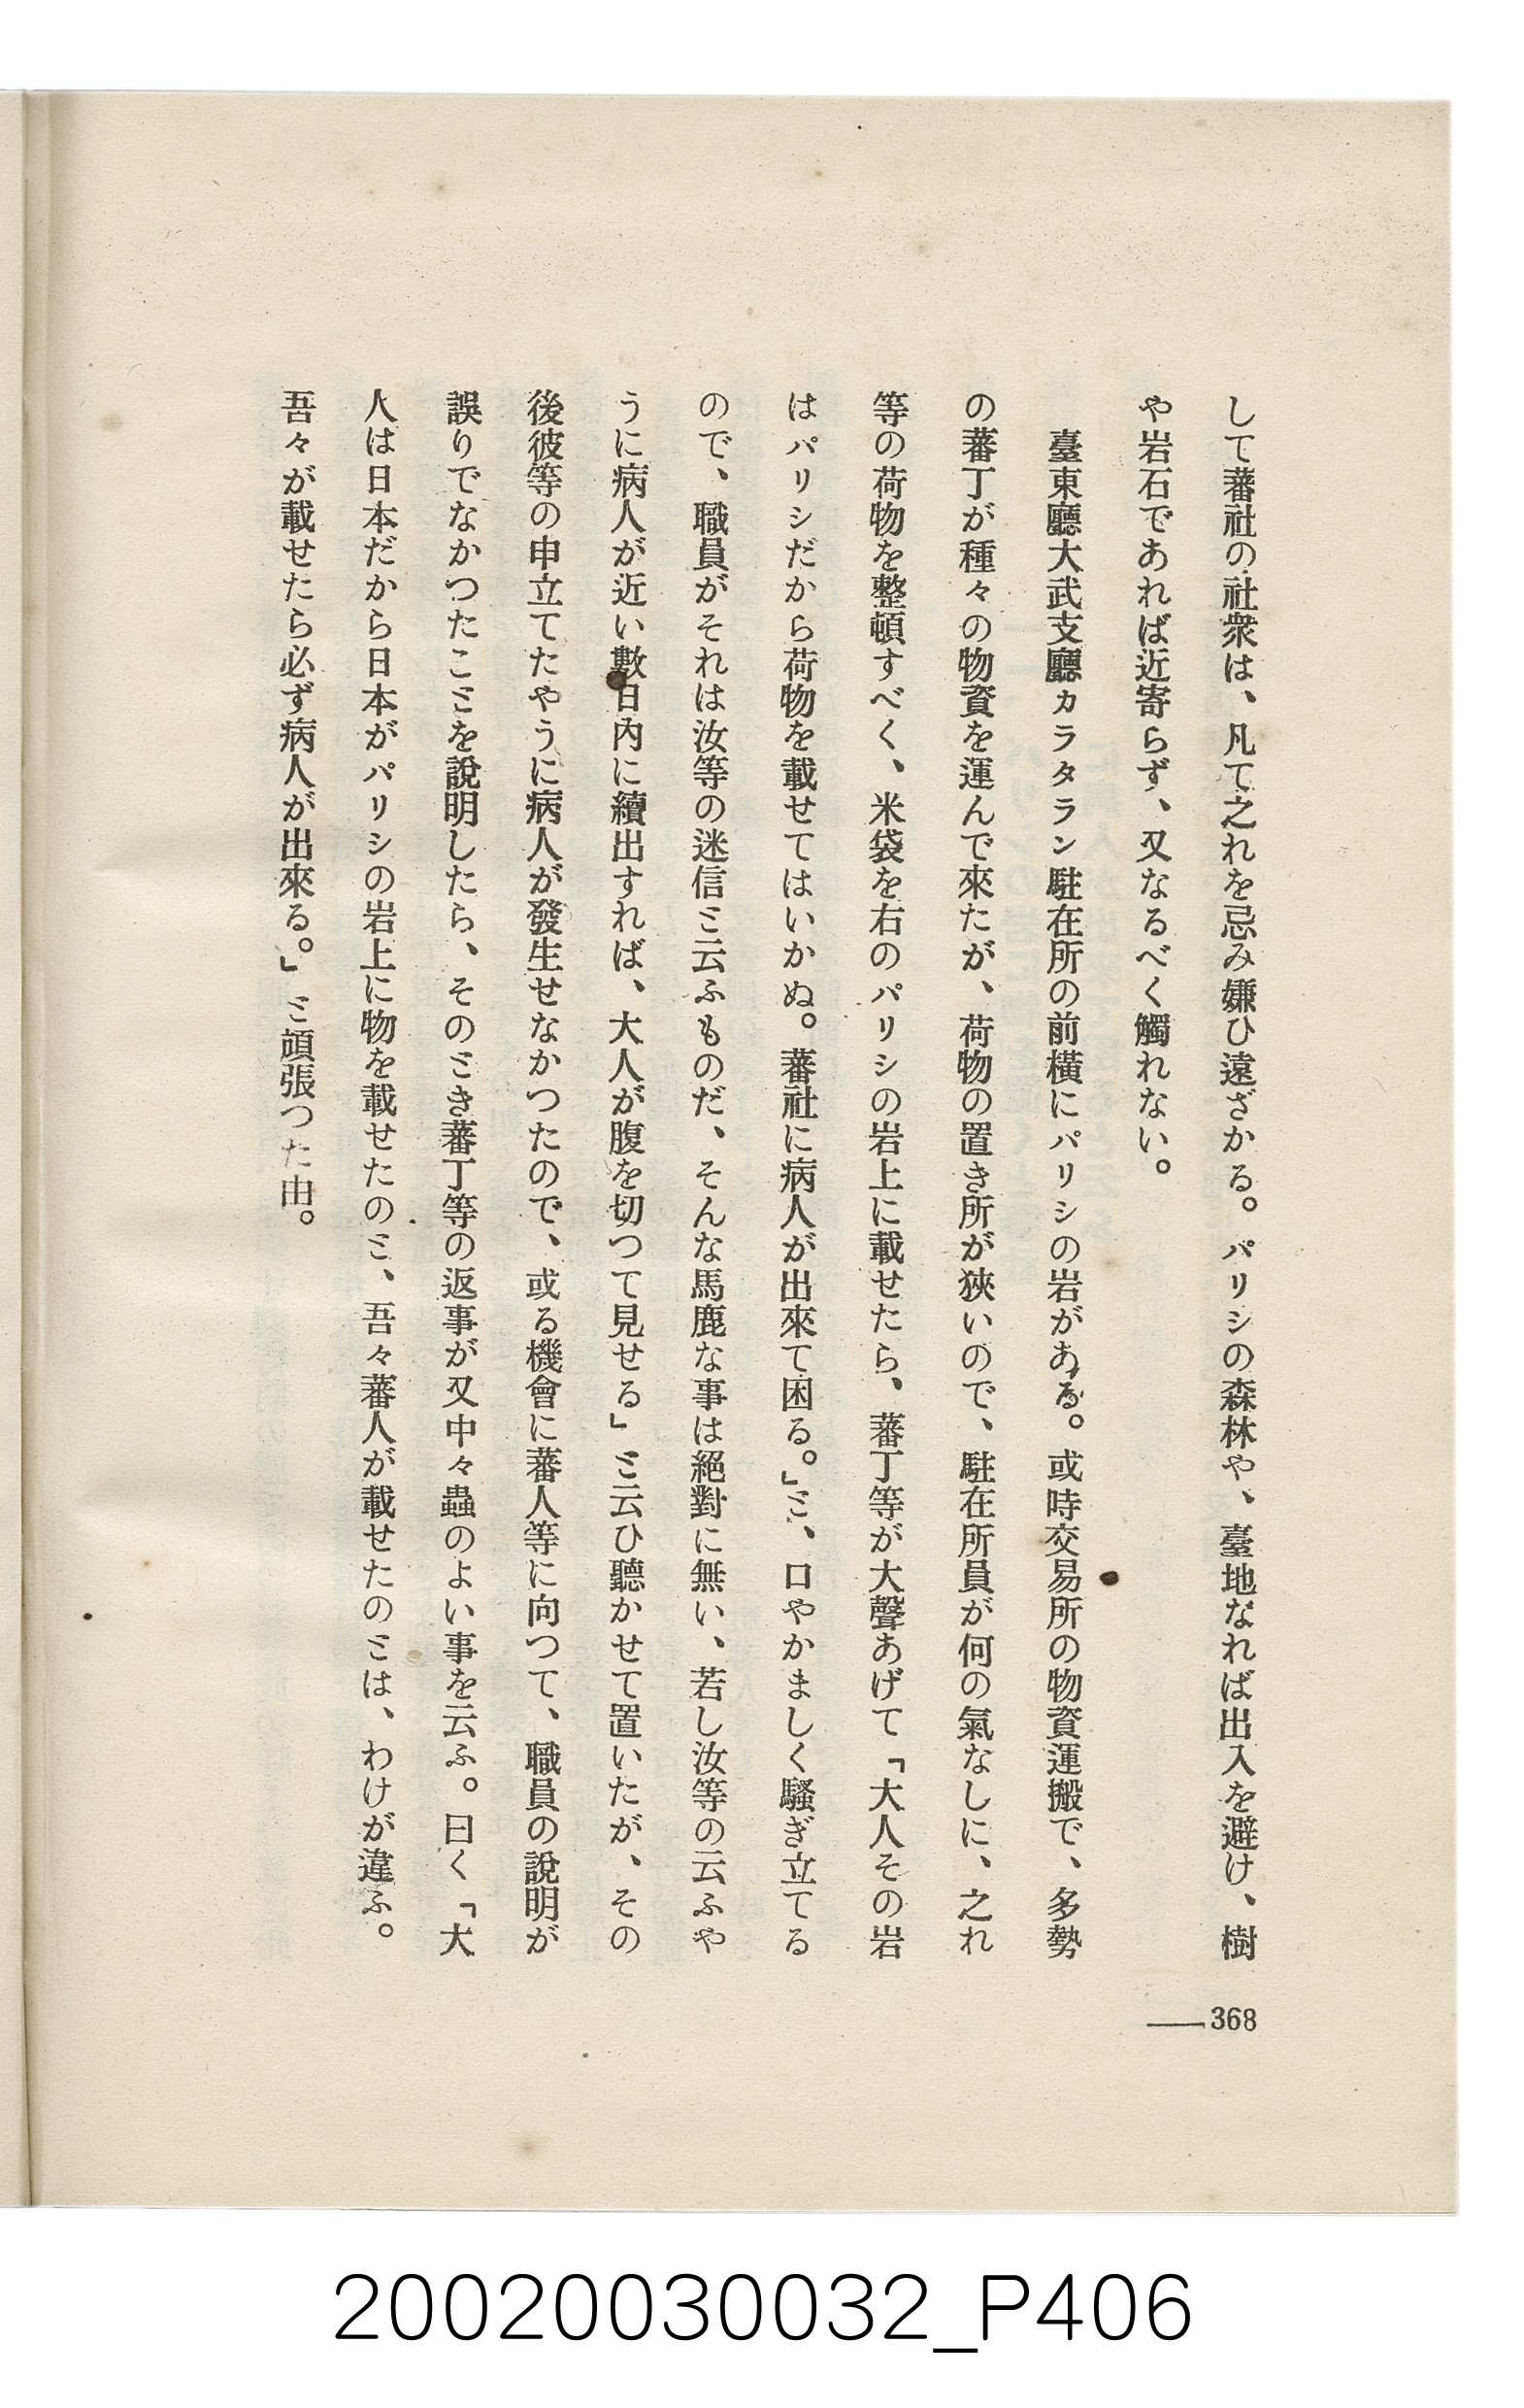 して蕃社の社衆は、凡て之れを忌み嫌ひ遠ざかる。パリシの森林や、臺地なれば出入を避け、樹
や岩石であれば近寄らず、又なるべく觸れない。
臺東廳大武支廳カラタラン駐在所の前橫にパリシの岩がある。或時交易所の物資運搬で、多勢
の蕃丁が種々の物資を運んで來たが、荷物の置き所が狹いので、駐在所員が何の氣なしに、之れ
等の荷物を整頓すべく、米袋を右のパリシの岩上に載せたら、蕃丁等が大聲あげて「大人その岩
はパリシだから荷物を載せてはいかぬ。蕃社に病人が出來て困る。」と、口やかましく騷ぎ立てる
ので、職員がそれは汝等の迷信と云ふものだ、そんな馬鹿な事は絕對に無い、若し汝等の云ふや
うに病人が近い數日內に續出すれば、大人が腹を切つて見せる」と云ひ聽かせて置いたが、その
後彼等の申立てたやうに病人が發生せなかつたので、或る機會に蕃人等に向つて、職員の說明が
誤りでなかつたことを說明したら、そのとき蕃丁等の返事が又中々蟲のよい事を云ふ。曰く「大
人は日本だから日本がパリシの岩上に物を載せたのと、吾々蕃人が載せたのとは、わけが違ふ。
吾々が載せたら必ず病人が出來る。」と頑張つた由。
368
20020030032_P406